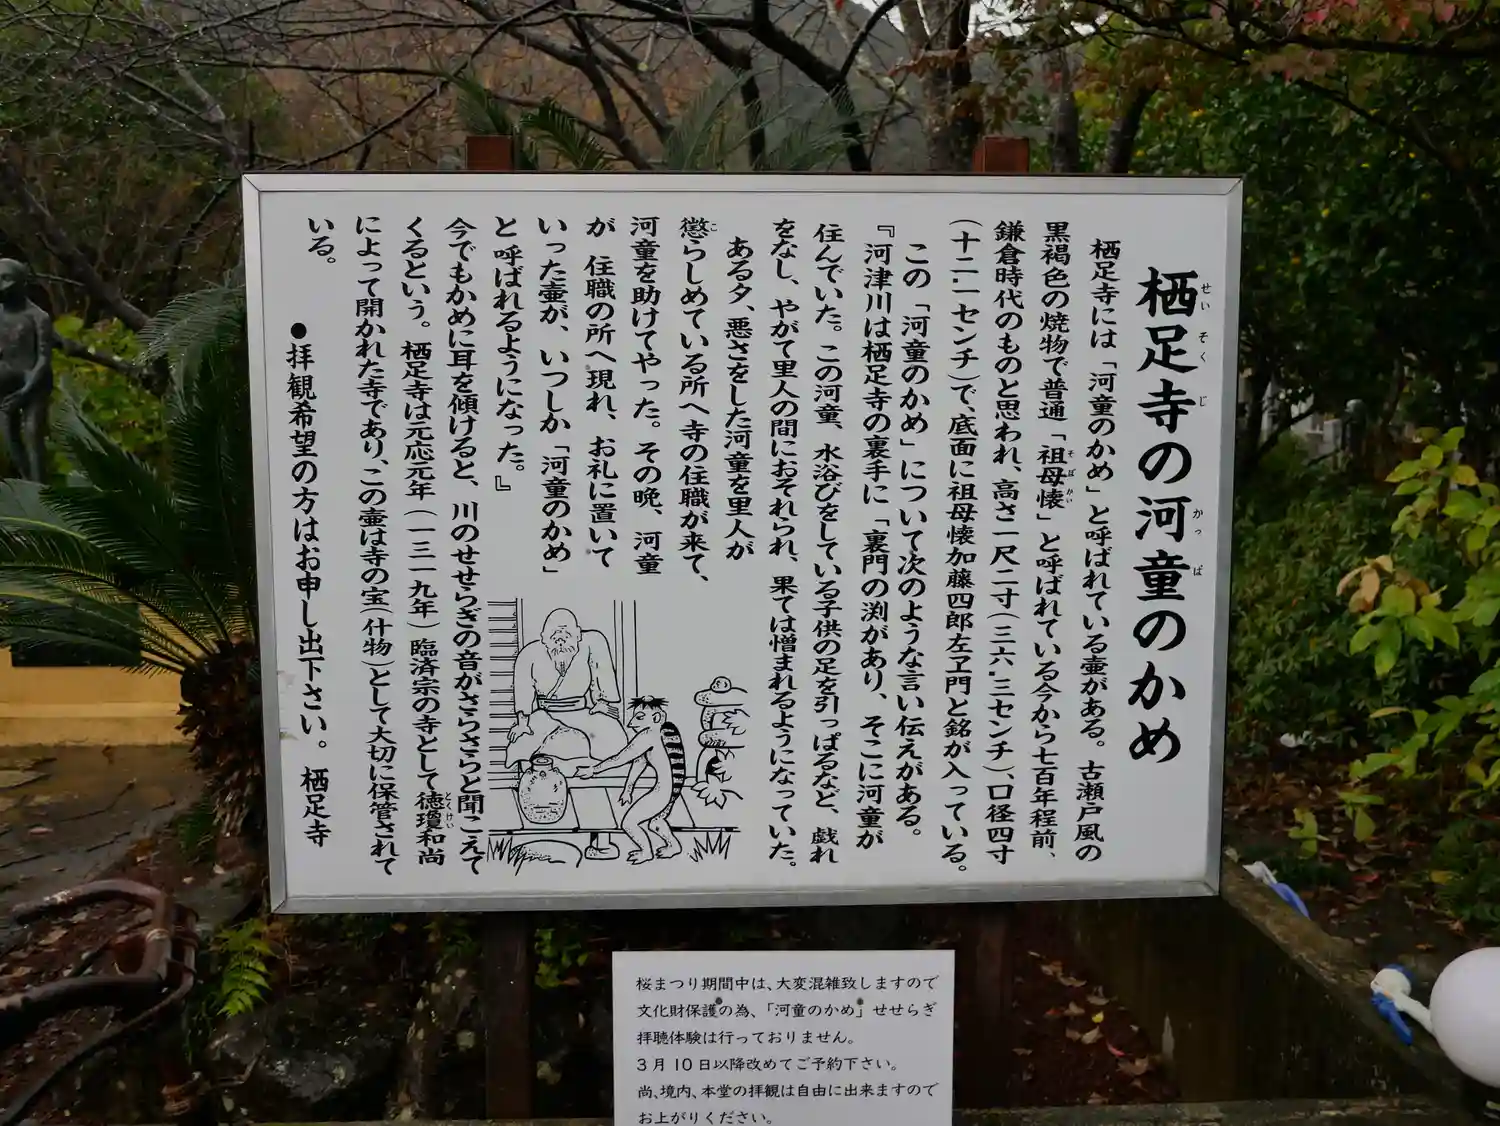 栖足寺の河童のかめ
せい そく じ かっ ぱ
栖足寺には「河童のかめ」と呼ばれている壷がある。古瀬戸風の
黒褐色の焼物で普通「祖母懐」と呼ばれている今から七百年程前、
そぼ かい
鎌倉時代のものと思われ、高さ一尺二寸(三六.三センチ)、口径四寸
(十二.一センチ)で、底面に祖母懐加藤四郎左ヱ門と銘が入っている。
この「河童のかめ」について次のような言い伝えがある。
『河津川は栖足寺の裏手に「裏門の渕があり、そこに河童が
住んでいた。この河童、水浴びをしている子供の足を引っぱるなど、戯れ
をなし、やがて里人の間におそれられ、果ては憎まれるようになっていた。
ある夕、悪さをした河童を里人が
懲らしめている所へ寺の住職が来て、
こ
河童を助けてやった。その晩、河童
が 住職の所へ現れ、お礼に置いて
いった壷が、いつしか「河童のかめ」
と呼ばれるようになった。』
今でもかめに耳を傾けると、川のせせらぎの音がさらさらと聞こえて
くるという。栖足寺は元応元年(一三一九年)臨済宗の寺として徳瓊和尚
とくけい
によって開かれた寺であり、この壷は寺の宝(什物)として大切に保管されて
いる。
●拝観希望の方はお申し出下さい。 栖足寺
桜まつり期間中は、大変混雑致しますので
文化財保護の為、「河童のかめ」せせらぎ
拝聴体験は行っておりません。
3月10日以降改めてご予約下さい。
尚、境内、本堂の拝観は自由に出来ますので
お上がりください。